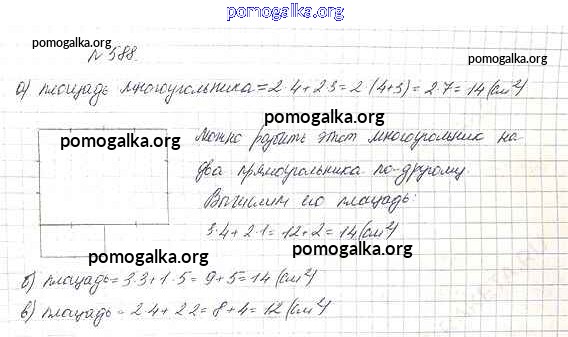 pomogalka.org
pomogalka.org
№ 588.
а) площадь многоугольника = 2·4+2·3 = 2·(4+3) = 2·7 = 14 (см²)
pomogalka.org
Можно разбить этот многоугольник на
pomogalka.org
два прямоугольника по-другому.
Вычислим его площадь:
pomogalka.org
3·4+2·1 = 12+2 = 14 (см²)
pomogalka.org
pomogalka.org
б) площадь = 3·3+1·5 = 9+5 = 14 (см²)
в) площадь = 2·4+2·2 = 8+4 = 12 (см²)
pomogalka.org
pomogalka.org